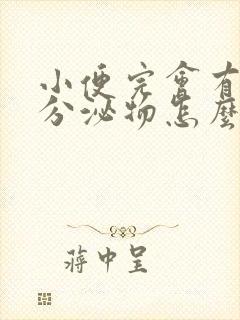 小便完會有
分泌物怎麼
蔣中呈